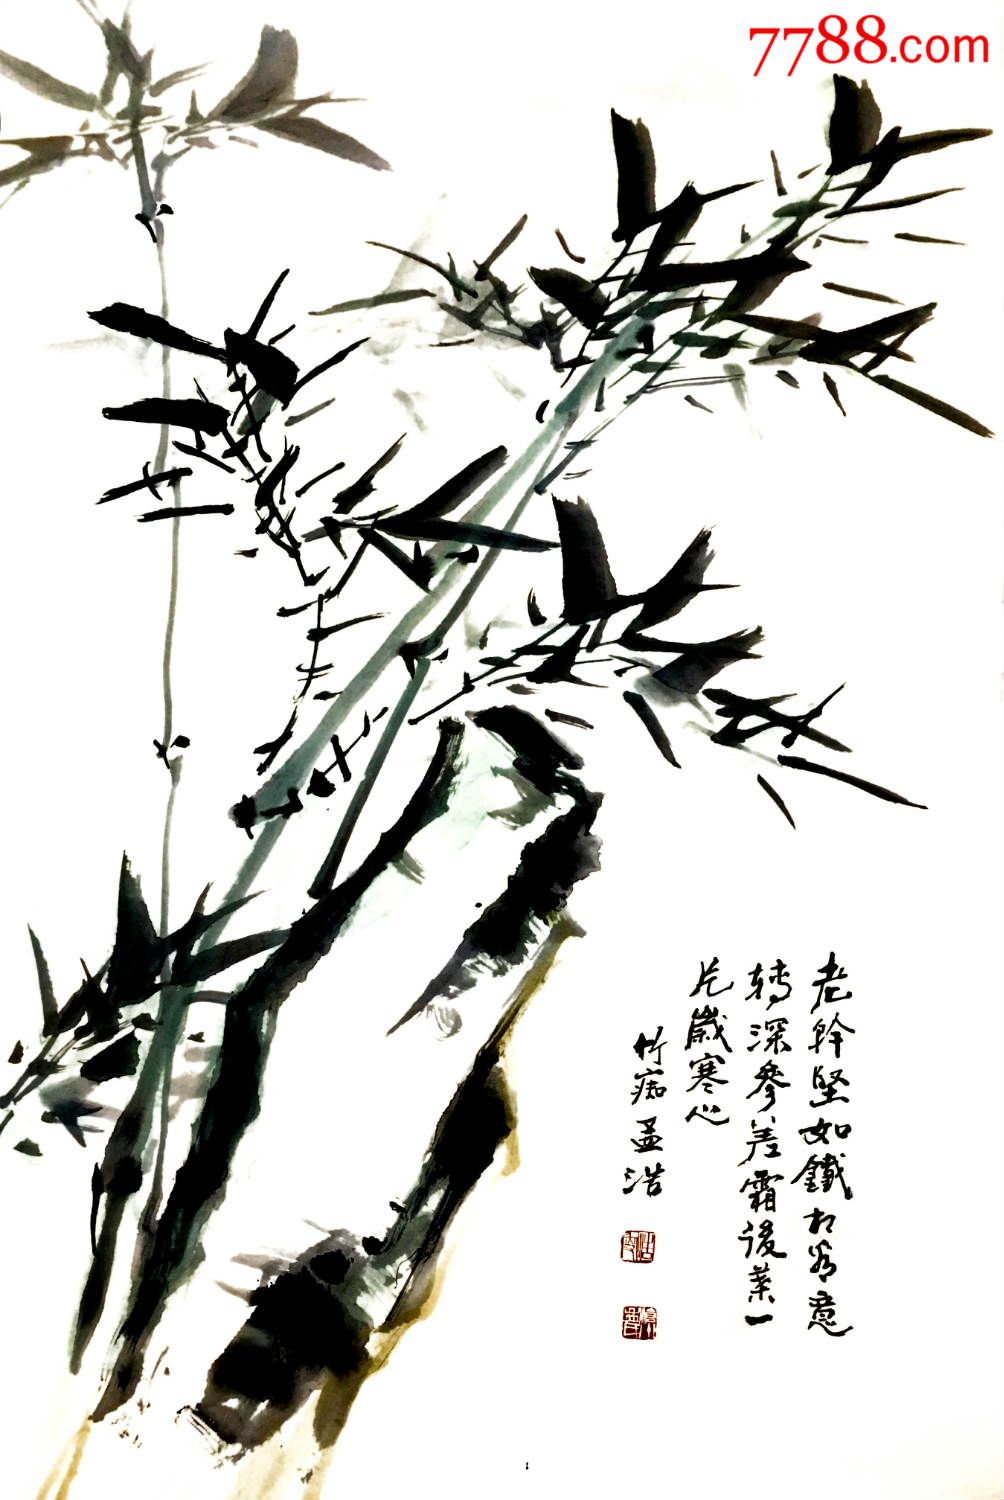 7788.com
老幹堅如鐵相看意
轉深參差霜後葉一
片歲寒心
竹痴孟浩